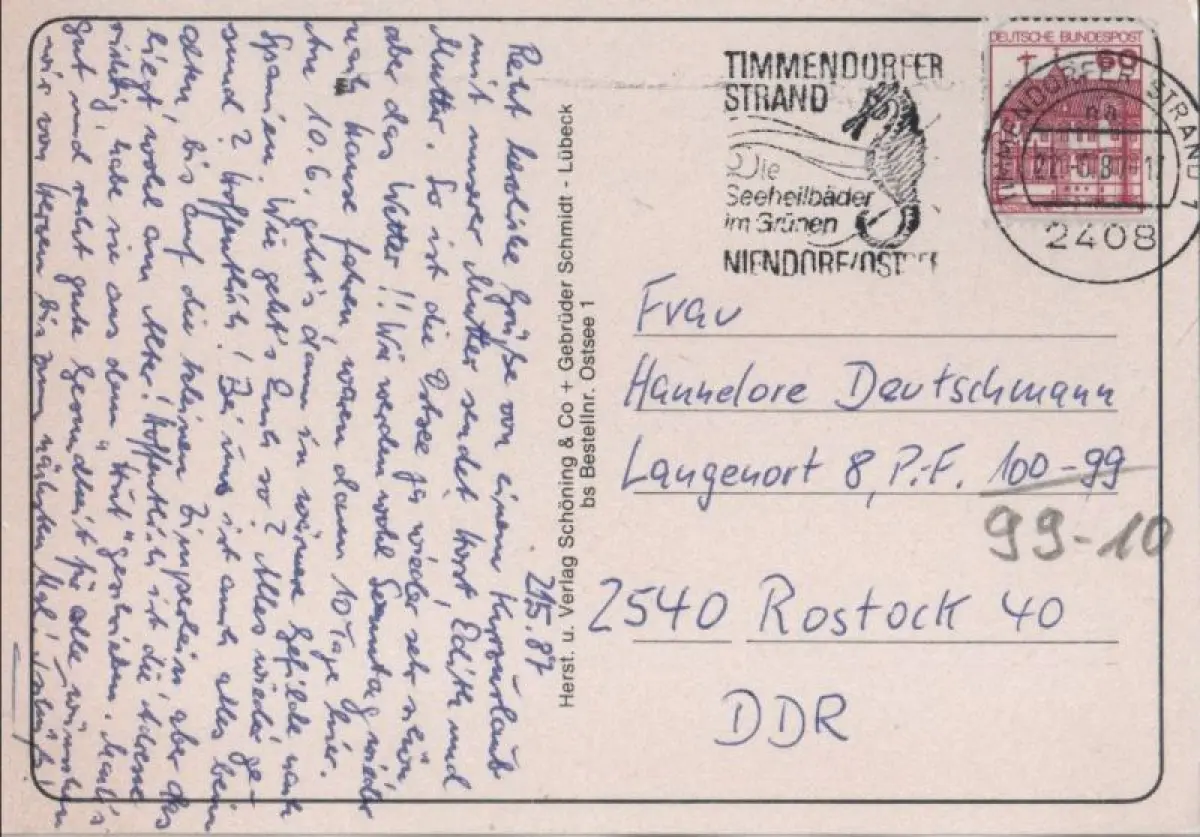 21.5.87
Recht herzliche Grüße von einem Kurzurlaub
mit unserer Mutter sendet Horst, Edith und
Mutter. So ist die Ostsee ja wieder sehr schön,
aber das Wetter!! Wir werden wohl Sonntag wieder
nach Hause fahren, waren dann 10 Tage hier.
Am 10.6. geht's dann in wärmere Gefilde nach
Spanien. Wie geht's Euch so? Alles wieder ge-
sund? Hoffentlich! Bei uns ist auch alles beim
alten, bis auf die kleinen Zimperlein aber das
liegt wohl am Alter! Hoffentlich ist die Adresse
richtig, habe sie aus dem "Hut" geschrieben. Macht's
gut und recht gute Gesundheit für alle wünschen
wir von Herzen bis zum nächsten Mal! Tschüß!
Herst. u. Verlag Schöning & Co + Gebrüder Schmidt - Lübeck
bs Bestellnr. Ostsee 1
TIMMENDORFER
STRAND
Die
Seeheilbäder
im Grünen
NIENDORF/OSTSEE
DEUTSCHE BUNDESPOST
60
TIMMENDORFER STRAND 1
2408
Frau
Hannelore Deutschmann
Langenort 8, P.-F. 100-99
99-10
2540 Rostock 40
DDR